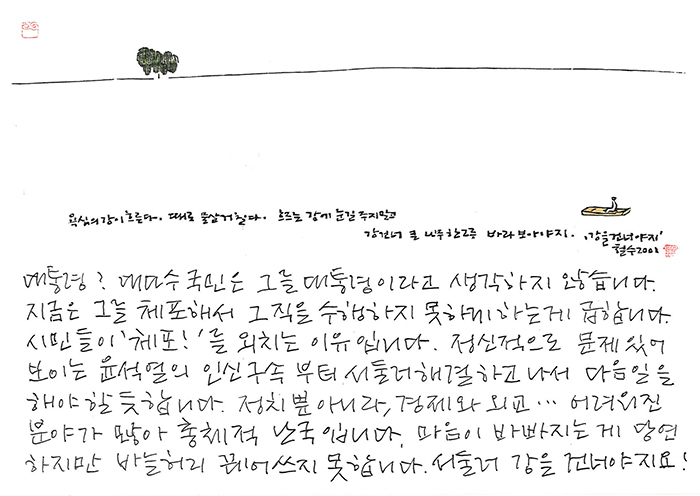 욕심의 강이 흐른다. 때로 물살 거칠다. 흐르는 강에 눈길 주지 말고
강 건너 큰 나무 한 그루 바라보아야지. '강을 건너야지'
철수 2001
대통령? 대다수 국민은 그를 대통령이라고 생각하지 않습니다.
지금은 그를 체포해서 그 직을 수행하지 못하게 하는게 급합니다.
시민들이 '체포!'를 외치는 이유입니다. 정신적으로 문제 있어
보이는 윤석열의 인신구속 부터 서둘러 해결하고 나서 다음 일을
해야 할 듯합니다. 정치 뿐 아니라, 경제와 외교… 어려워진
분야가 많아 총체적 난국입니다. 마음이 바빠지는 게 당연
하지만 바늘허리 꿰어 쓰지 못합니다. 서둘러 강을 건너야지요!